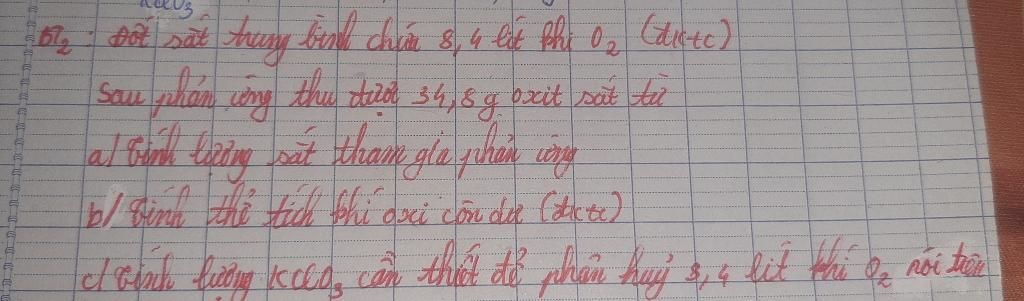 KClO3
BT2: Đốt sắt trong bình chứa 8,4 lít khí O2 (đktc)
Sau phản ứng thu được 34,8 g oxit sắt từ
a/ Tính lượng sắt tham gia phản ứng
b/ Tính thể tích khí oxi còn dư (đktc)
c/ Tính lượng KClO3 cần thiết để phân huỷ 8,4 lít khí O2 nói trên